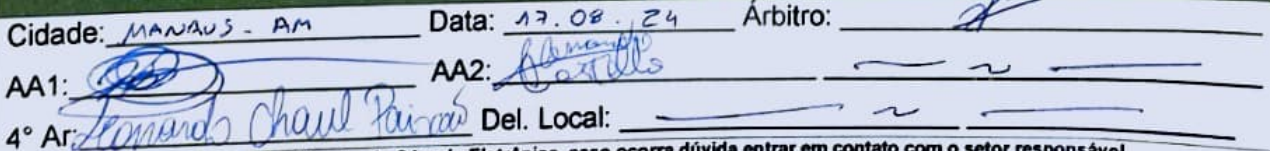 Cidade: MANAUS - AM Data: 17.08.24 Árbitro:
AA1: AA2:
4° Ar: Leonardo Chaul Paixão Del. Local: — ~ —
caso ocorra dúvida entrar em contato com o setor responsável